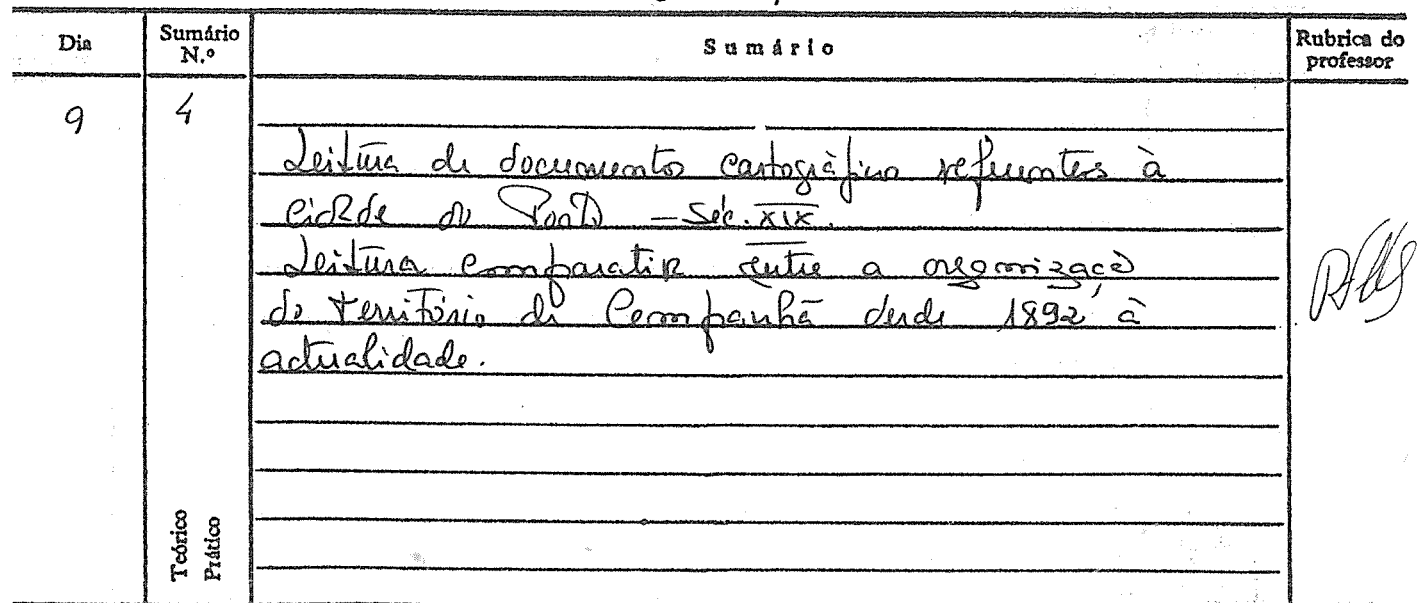 Dia Sumário N.º Sumário Rubrica do professor
9 4
Leitura de documentos cartográficos referentes à
cidade do Porto – Séc. XIX.
Leitura comparativa entre a organização
do território de Campanhã desde 1892 à
actualidade.
Teórico
Prático